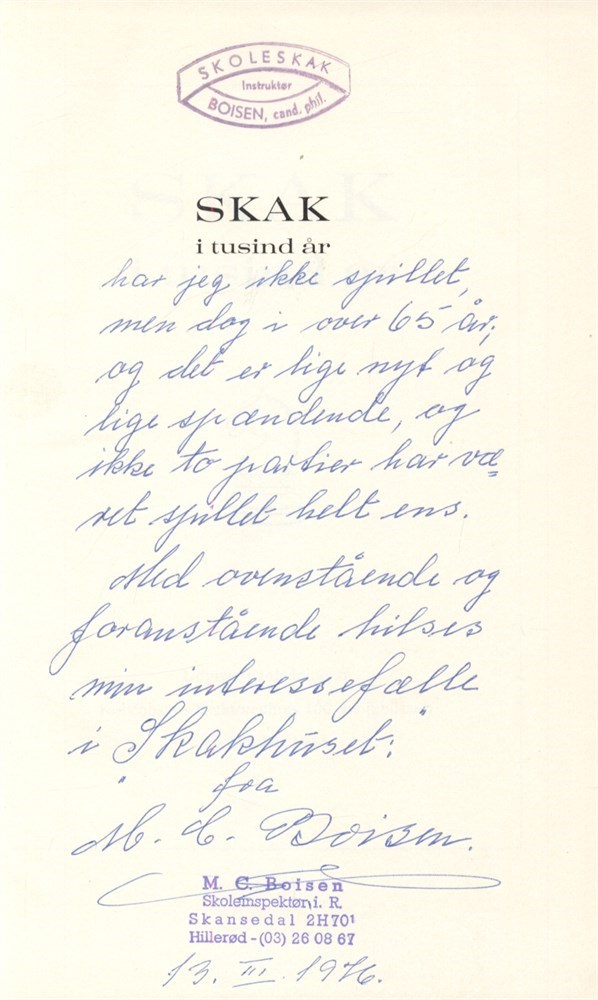 SKOLESKAK
Instruktør
BOISEN, cand. phil.
SKAK
i tusind år
har jeg ikke spillet,
men dog i over 65 år,
og det er lige nyt og
lige spændende, og
ikke to partier har væ=
ret spillet helt ens.
Med ovenstående og
foranstående hilses
min interessefælle
i "Skakhuset."
fra
M. C. Boisen.
M. C. Boisen
Skoleinspektør i. R.
Skansedal 2H701
Hillerød - (03) 26 08 67
13. III. 1976.